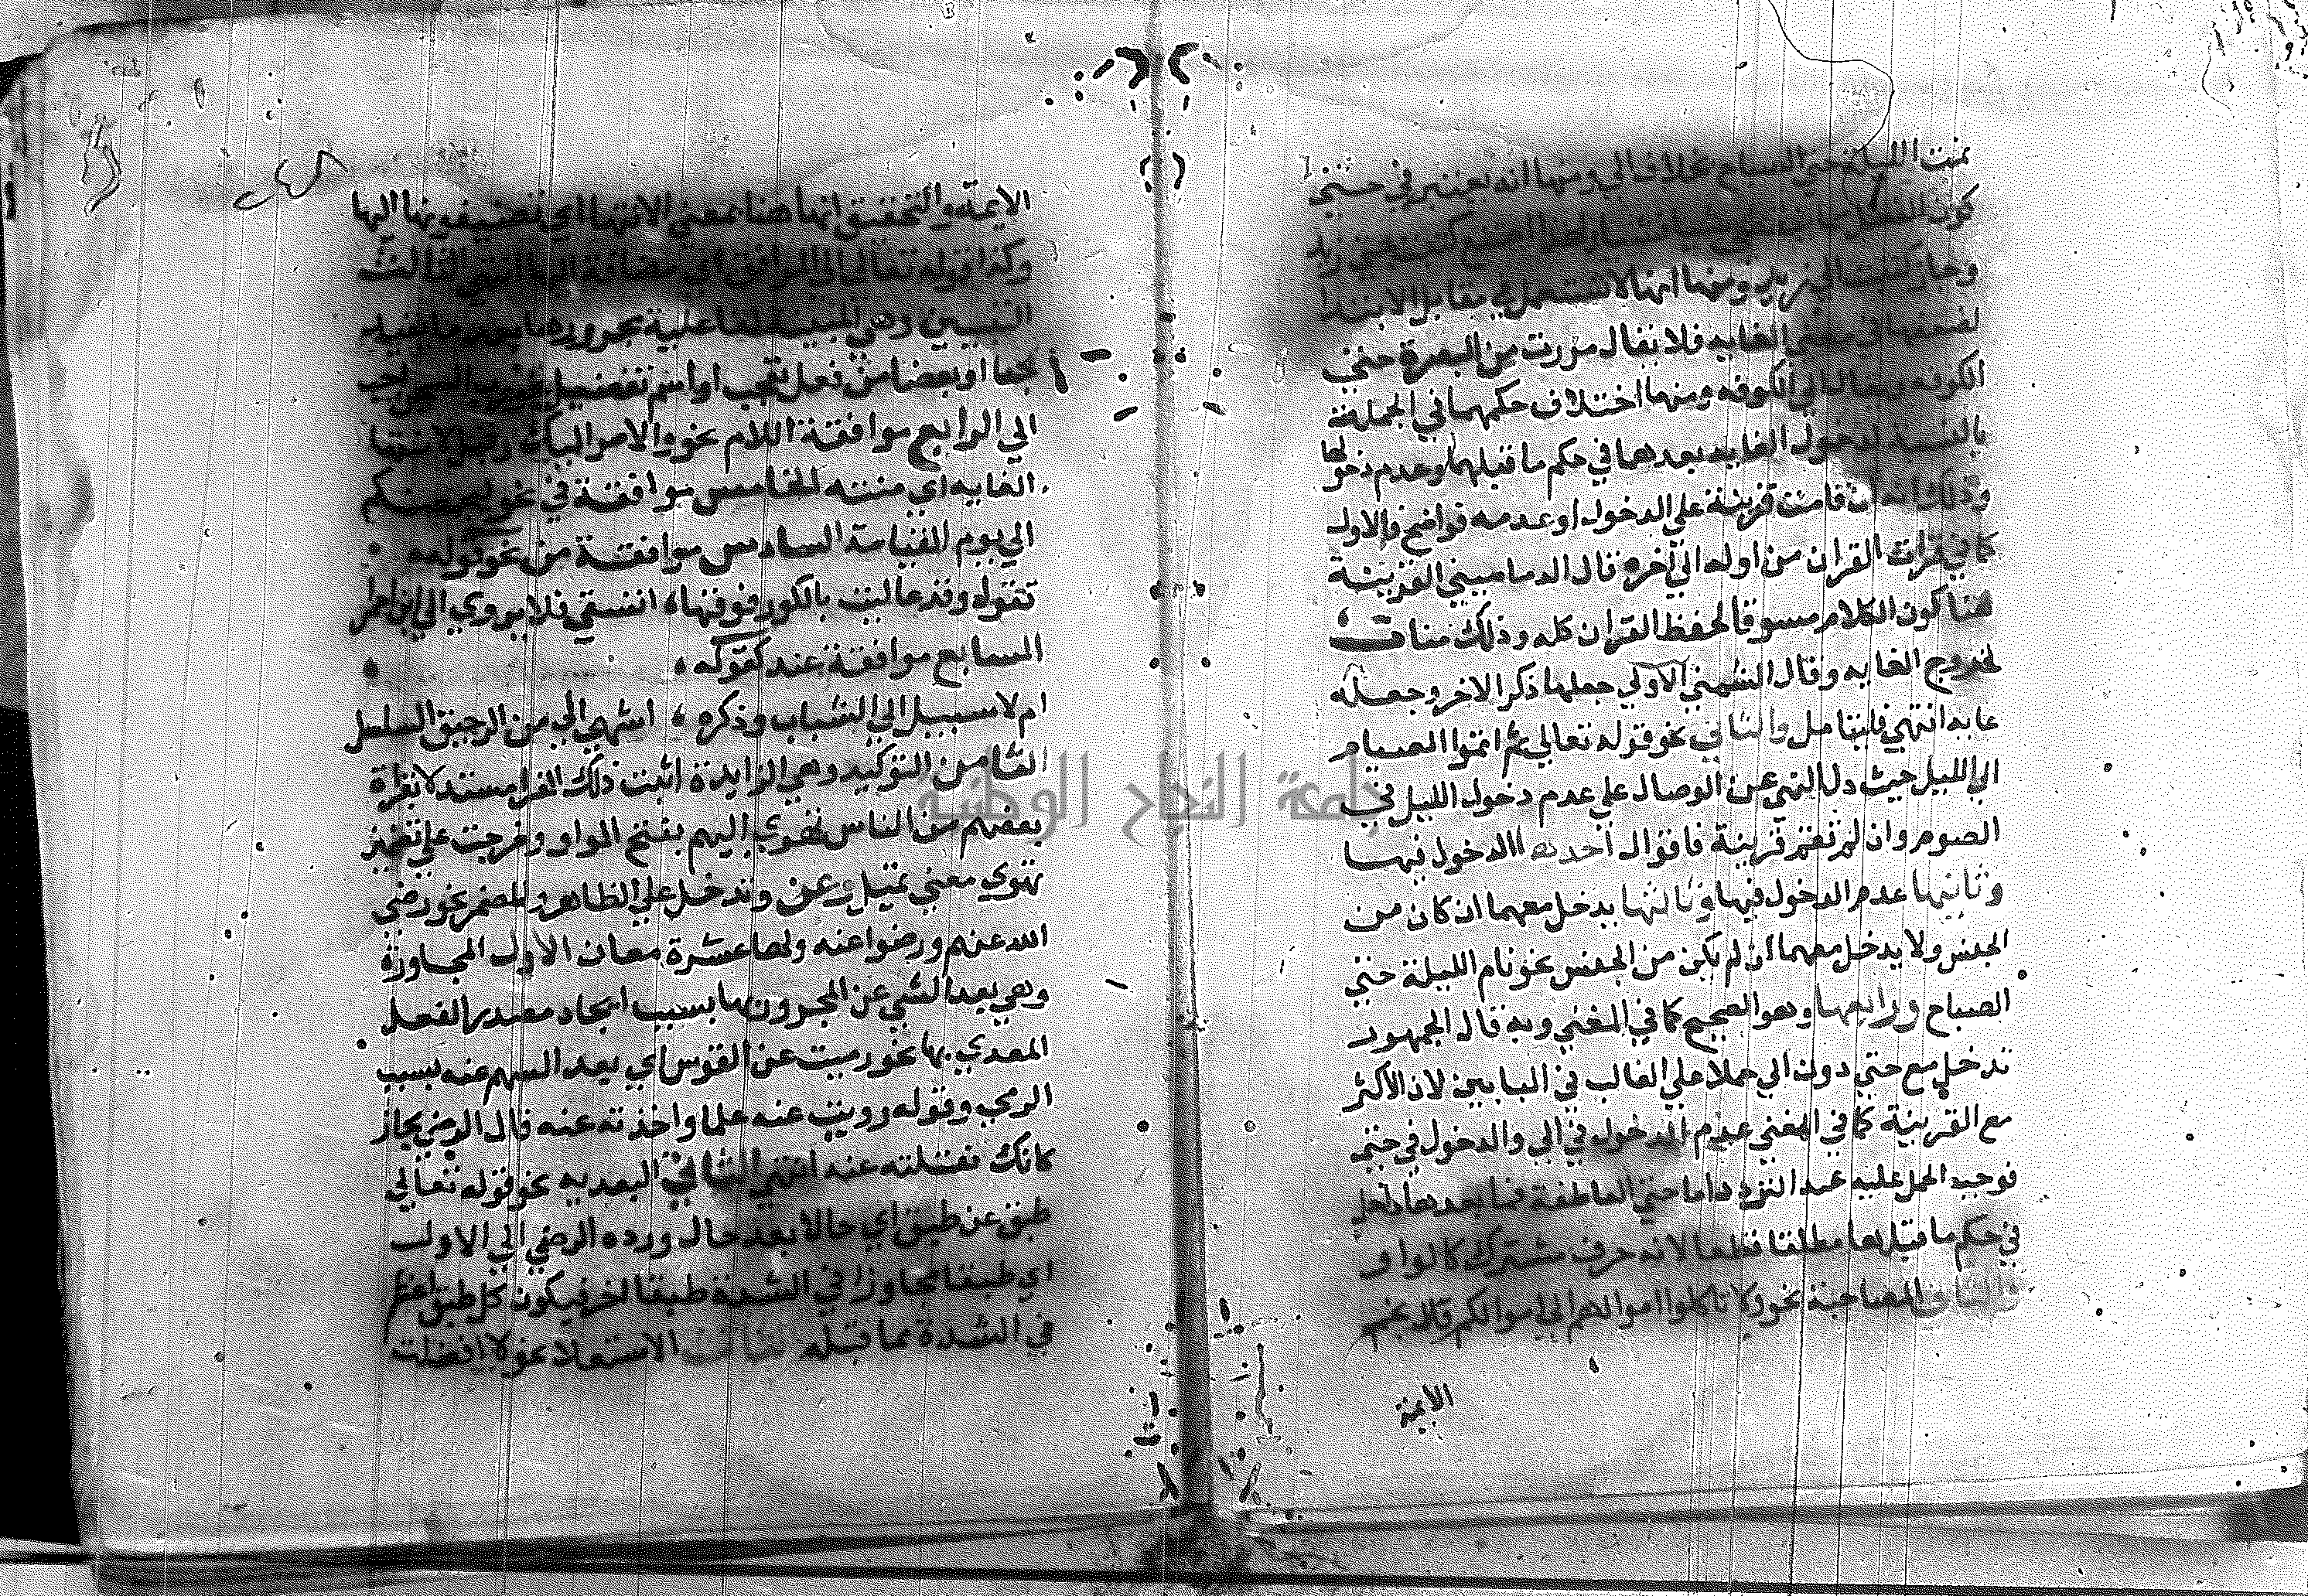 نمت الليلة حتى الصباح بخلاف الي ومنها انه يعتبر في حتى
كون الفعل
وجاز كتبت الي زيد ومنها انها لا تستعمل في مقابل الابتدا
لضعفها في معني الغايه فلا يقال سرت من البصرة حتي
الكوفه ويقال الي الكوفه ومنها اختلاف حكمهما في الجملة
بالنسبة لدخول الغايه بعدهما في حكم ما قبلهما وعدم دخولها
وذلك انه ان قامت قرينة علي الدخول او عدمه فواضح فالاول
كما في قرات القران من اوله الي اخره قال الدماميني القرينة
هنا كون الكلام مسوقا لحفظ القران كله وذلك مناف
لخروج الغايه وقال الشمني الاولي جعلها ذكر الاخر وجعله
غايه انتهي فليتامل والثاني نحو قوله تعالي ثم اتموا الصيام
الي الليل حيث دل النهي عن الوصال علي عدم دخول الليل في
الصوم وان لم تقم قرينة فاقوال احدها الدخول فيها
وثانيها عدم الدخول فيها وثالثها يدخل معهما ان كان من
الجنس ولا يدخل معهما ان لم يكن من الجنس نحو نام الليلة حتي
الصباح ورابعها وهو الصحيح كما في المغني وبه قال الجمهور
تدخل مع حتي دون الي حملا علي الغالب في البابين لان الاكثر
مع القرينة كما في المغني عدم الدخول في الي والدخول في حتي
فوجب الحمل عليه عند التردد اما حتي العاطفة فما بعدها داخل
في حكم ما قبلها مطلقا قطعا لانه حرف مشترك كالواو
الثاني المصاحبة نحو ولا تاكلوا اموالهم الي اموالكم قال بعض
الايمة
الايمة والتحقيق انها هنا بمعني الانتها اي تضيفونها اليها
وكذا قوله تعالي الي المرافق اي مضافة الي انتهي الثالث
التبيين وهي المبينة لفاعلية مجرورها بعد ما يفيد
حبا او بعضا من فعل تعجب او اسم تفضيل نحو رب السجن احب
الي الرابع موافقة اللام نحو والامر اليك وقيل لانتها
الغايه اي منته الخامس موافقة في نحو ليجمعنكم
الي يوم القيامة السادس موافقة من نحو قوله
تقول وقد عاليت بالكور فوقها، ايسقي فلا يروي الي ابن احمر
السابع موافقة عند كقوله،
ام لا سبيل الي الشباب وذكره، اشهي الي من الرحيق السلسل
الثامن التوكيد وهي الزايدة اثبت ذلك الفرا مستدلا بقراة
بعضهم من الناس تهوي اليهم بفتح الواو وخرجت علي تضمين
تهوي معني تميل وعن وتدخل علي الظاهر والمضمر نحو رضي
الله عنهم ورضوا عنه ولها عشرة معان الاول المجاوزة
وهي بعد الشي عن المجرور بها بسبب ايجاد مصدر الفعل
المعدي بها نحو رميت عن القوس اي بعد السهم عنه بسبب
الرمي وقوله رويت عنه علما واخذته عنه قال الرضي مجاز
كانك نقلته عنه انتهي الثاني البعديه نحو قوله تعالي
طبق عن طبق اي حالا بعد حال ورده الرضي الي الاول
اي طبقا مجاوزا في الشدة طبقا اخر فيكون كل طبق اعظم
في الشدة مما قبله الثالث الاستعلا نحو لا افضلت
جامعة النجاح الوطنية